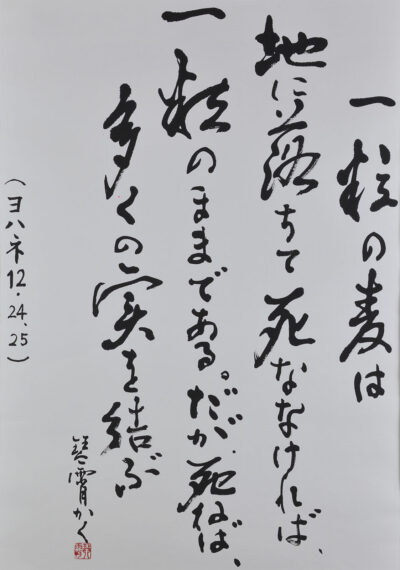 一粒の麦は
地に落ちて死ななければ、
一粒のままである。だが、死ねば、
多くの実を結ぶ
（ヨハネ12・24、25）
霄かく